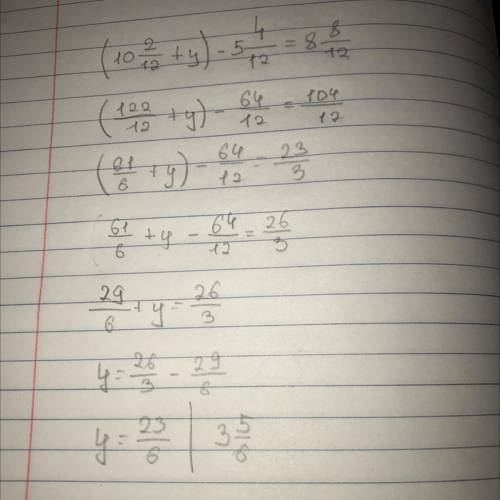 (10 2/12 + y) - 5 4/12 = 8 8/12
(122/12 + y) - 64/12 = 104/12
(61/6 + y) - 64/12 = 23/3
61/6 + y - 64/12 = 26/3
29/6 + y = 26/3
y = 26/3 - 29/6
y = 23/6 | 3 5/6